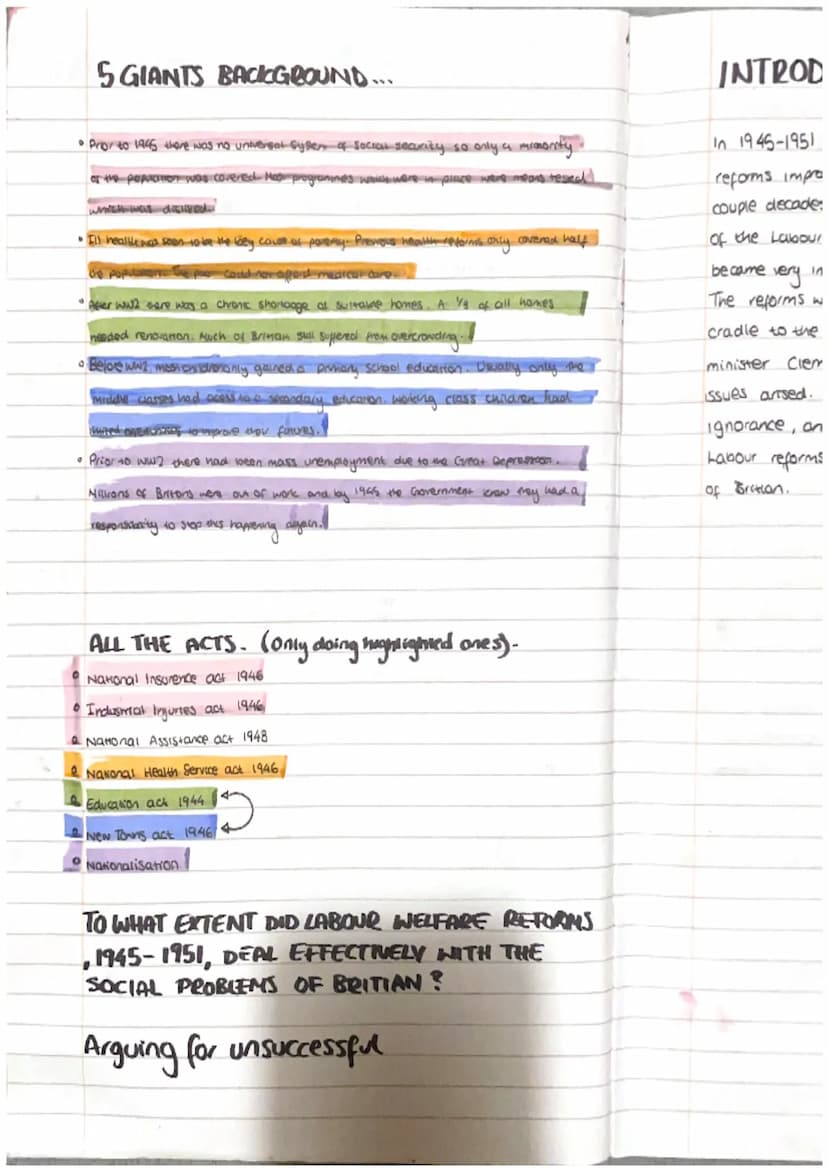 5 GIANTS BACKGROUND...
• Prior to 1945 there was no universal system of social security so only a minority
of the population was covered. Most programmes which were in place were means tested
which was disliked.
• Ill health was seen to be the key cause of poverty. Previous health reforms only covered half
the population. The poor could not afford medical care.
• After WW2 there was a chronic shortage of suitable homes. A 1/4 of all homes
needed renovation. Much of Britain still suffered from overcrowding.
• Before WW2, most children only gained a primary school education. Usually only the
middle classes had acess to a secondary education. Working class children had
limited to improve their futures.
• Prior to WW2 there had been mass unemployment due to the Great Depression.
Millions of Britons were out of work and by 1945 the Government knew they had a
responsibility to stop this happening again.
ALL THE ACTS. (Only doing highlighted ones)-
• National Insurence act 1946
• Industrial Injuries act 1946
• National Assistance act 1948
• National Health Service act 1946
• Education act 1944
• New Towns act 1946
• Nationalisation
TO WHAT EXTENT DID LABOUR WELFARE REFORMS
, 1945-1951, DEAL EFFECTIVELY WITH THE
SOCIAL PROBLEMS OF BRITIAN?
Arguing for unsuccessful
INTROD
In 1945-1951
reforms impro
couple decades
of the Labour
became very in
The reforms w
cradle to the
minister Clem
issues arised.
ignorance, an
Labour reforms
of Britian.